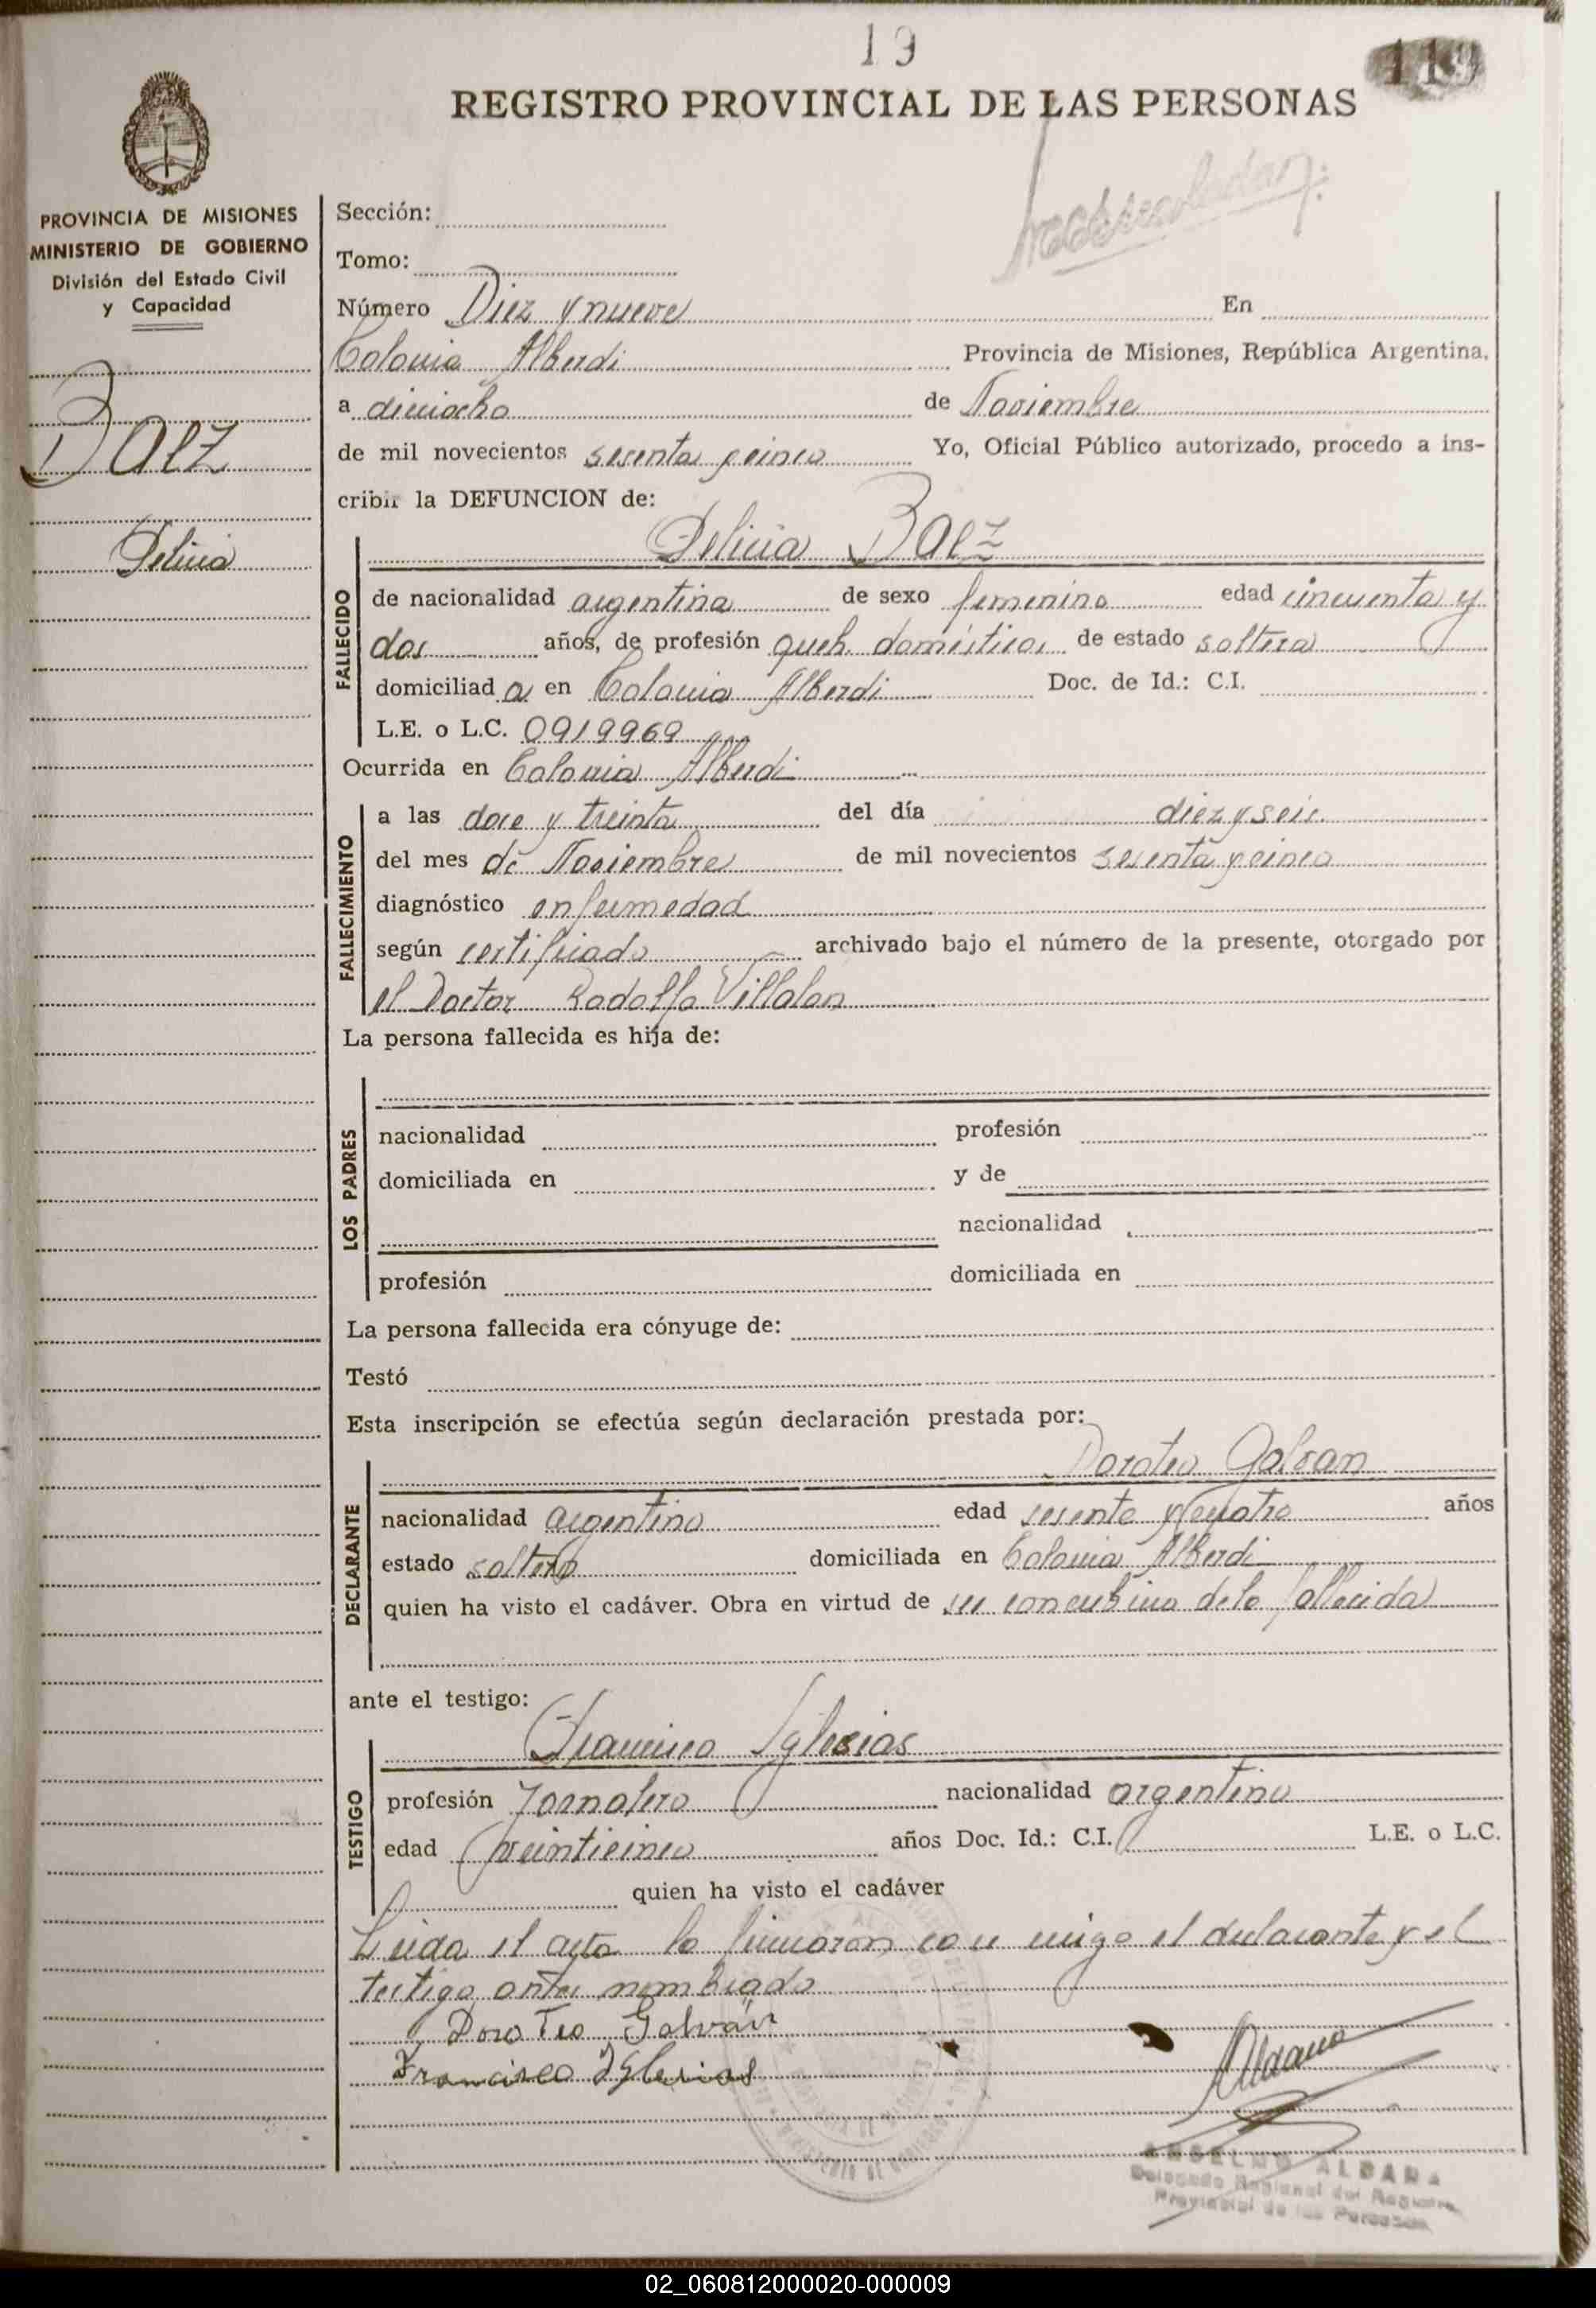 19
119
REGISTRO PROVINCIAL DE LAS PERSONAS
PROVINCIA DE MISIONES
MINISTERIO DE GOBIERNO
División del Estado Civil
y Capacidad
Baez
Delicia
Sección:
Tomo:
Número Diez y nueve En
Colonia Alberdi Provincia de Misiones, República Argentina,
a dieciocho de Noviembre
de mil novecientos sesenta y cinco Yo, Oficial Público autorizado, procedo a ins-
cribir la DEFUNCION de:
Delicia Baez
FALLECIDO
de nacionalidad argentina de sexo femenino edad cincuenta y
dos años, de profesión queh. domésticos de estado soltera
domiciliad a en Colonia Alberdi Doc. de Id.: C.I.
L.E. o L.C. 0919969
Ocurrida en Colonia Alberdi
FALLECIMIENTO
a las doce y treinta del día diez y seis
del mes de Noviembre de mil novecientos sesenta y cinco
diagnóstico enfermedad
según certificado archivado bajo el número de la presente, otorgado por
el Doctor Rodolfo Villalon
La persona fallecida es hija de:
LOS PADRES
nacionalidad profesión
domiciliada en y de
nacionalidad
profesión domiciliada en
La persona fallecida era cónyuge de:
Testó
Esta inscripción se efectúa según declaración prestada por:
Doroteo Galvan
DECLARANTE
nacionalidad argentino edad sesenta y cuatro años
estado soltero domiciliada en Colonia Alberdi
quien ha visto el cadáver. Obra en virtud de ser concubino de la fallecida
ante el testigo:
Francisco Iglesias
TESTIGO
profesión Jornalero nacionalidad argentino
edad veinticinco años Doc. Id.: C.I. L.E. o L.C.
quien ha visto el cadáver
Leida el acta la firmaron con migo el declarante y el
testigo antes nombrado
Doro Teo Galván
Francisco Iglesias
Aldana
ANSELMO ALDANA
Delegado Regional del Registro
Provincial de las Personas
02_060812000020-000009